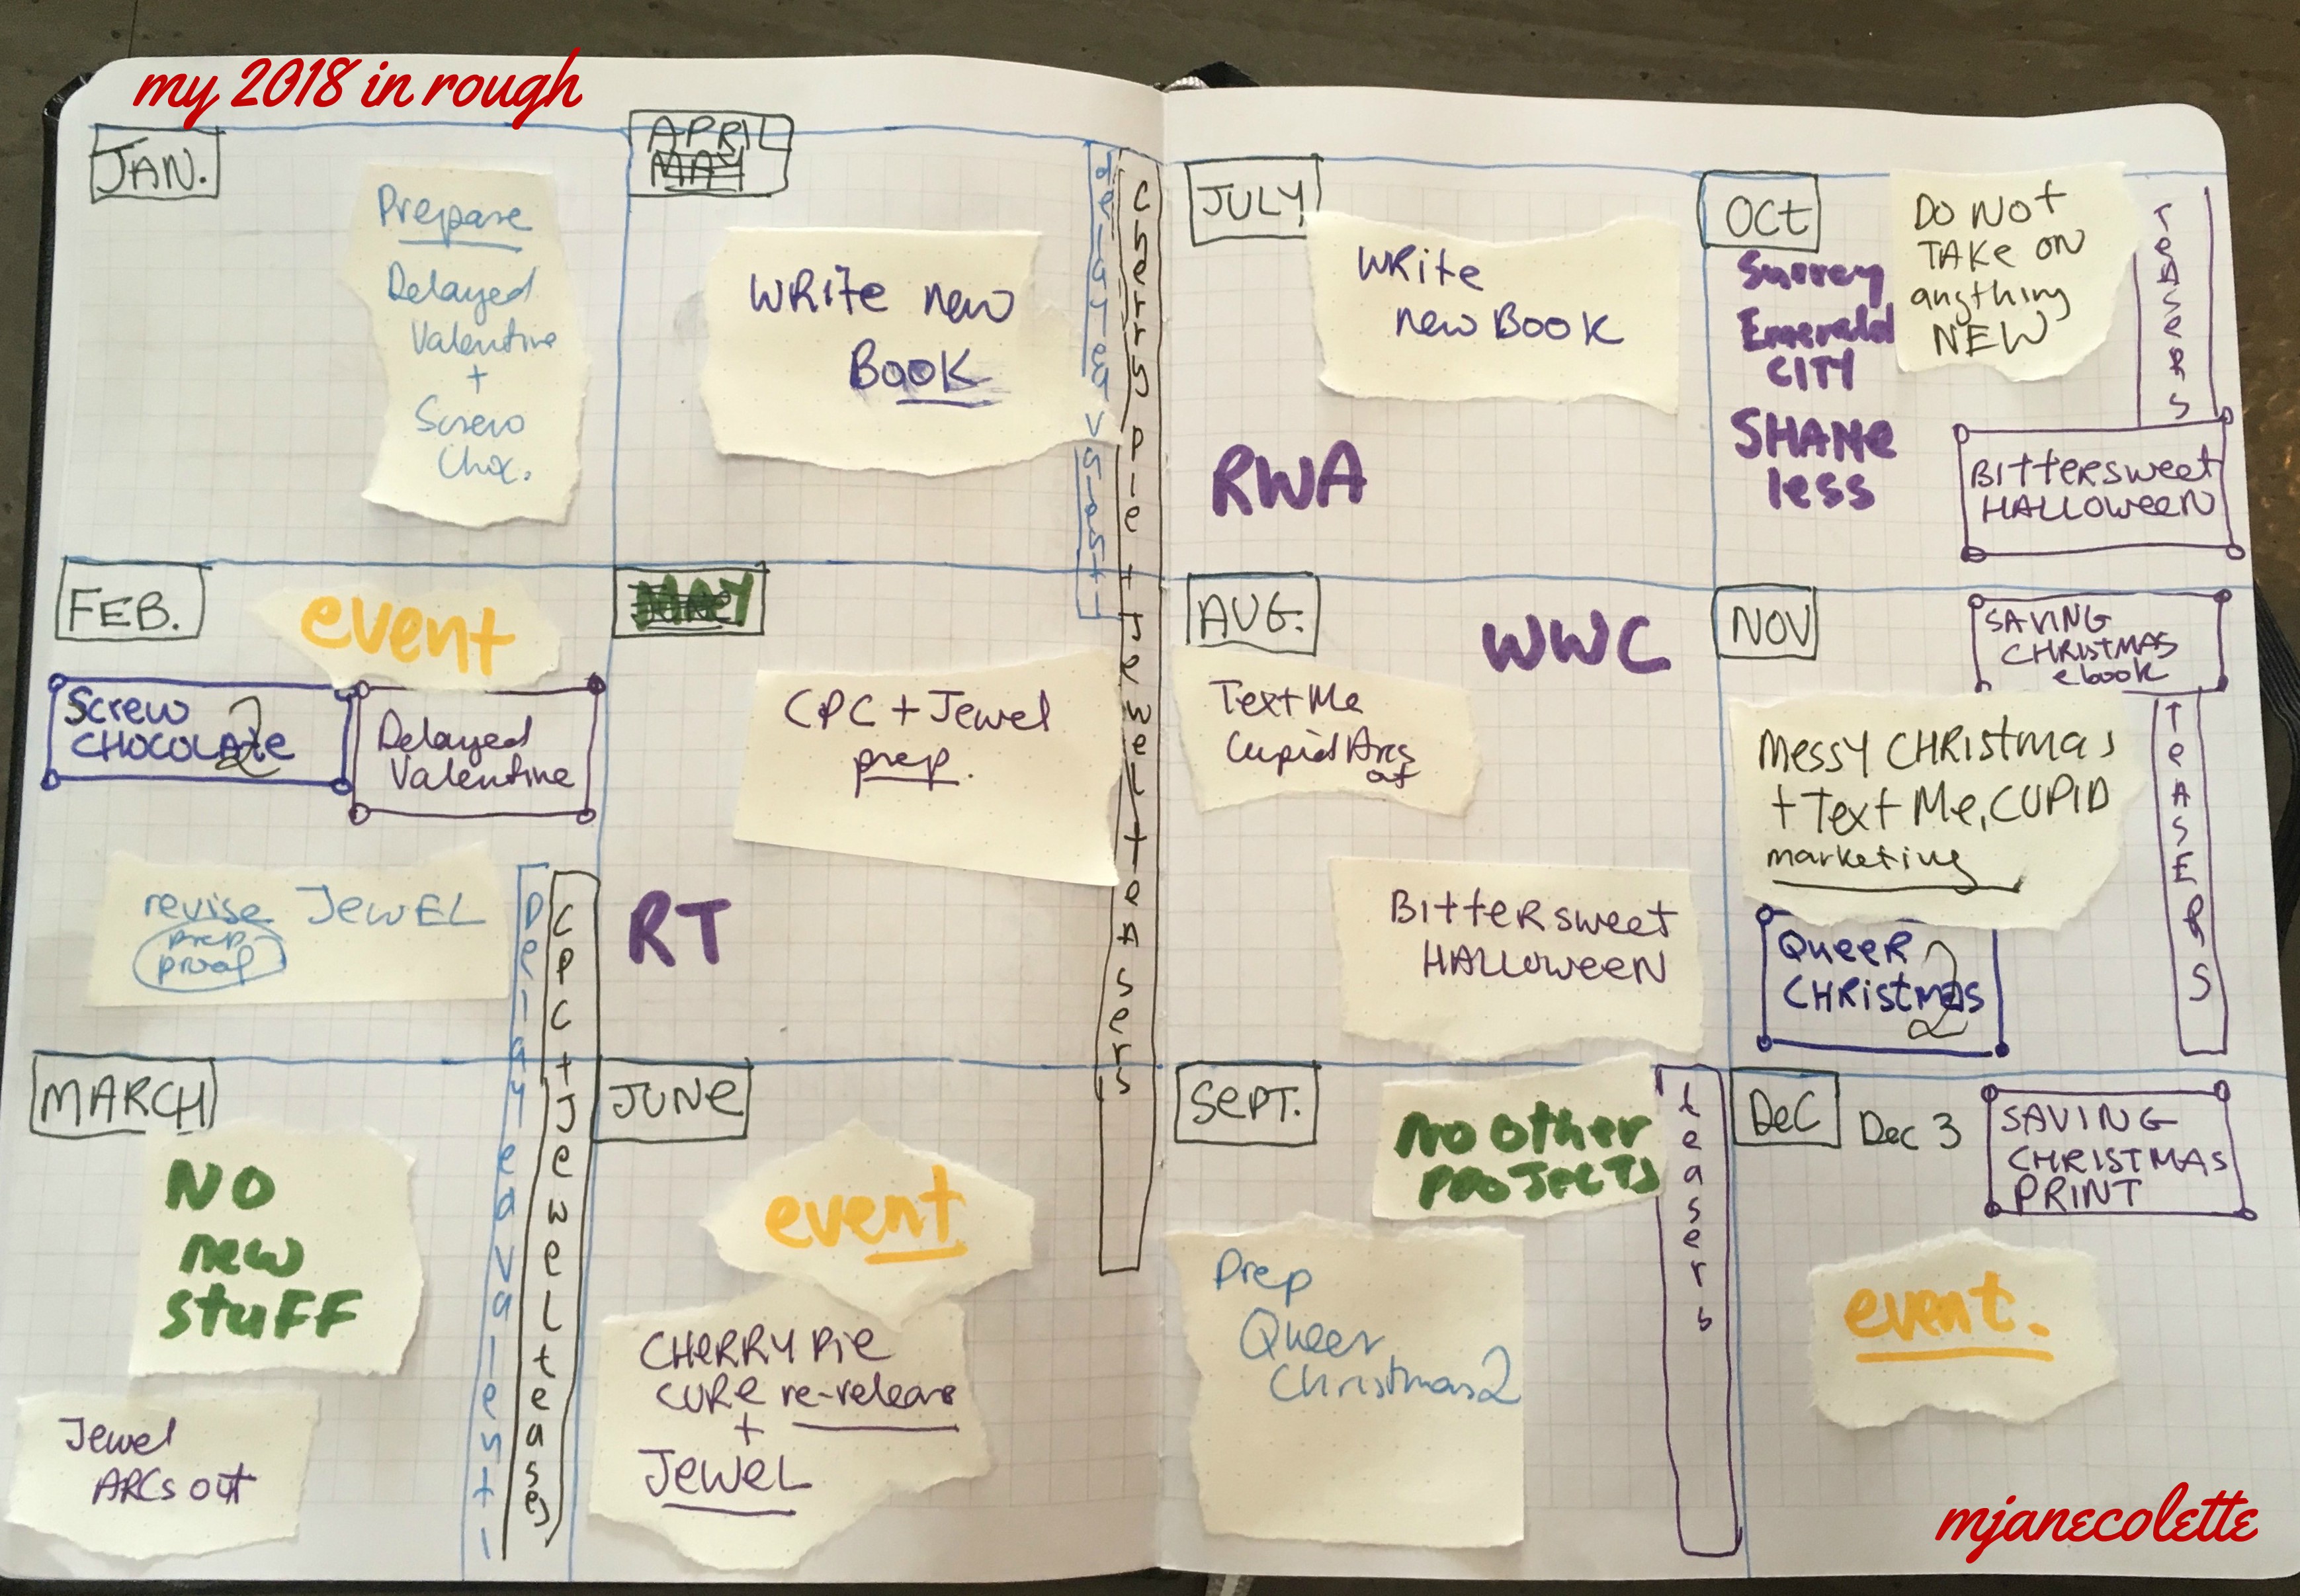 my 2018 in rough
JAN.
Prepare
Delayed
Valentine
+
Screw
Choc.
FEB.
event
Screw
CHOCOLATE 2
Delayed
Valentine
revise JEWEL
prep
proof
Delayed Valenti
CPC + Jewel teases
MARCH
NO
new
stuFF
Jewel
ARCs out
APRIL
MAY
WRite new
BOOK
delayed V
Cherry Pie + Jewel teasers
MAY
CPC + Jewel
prep.
RT
JUNE
event
CHERRY PiE
CURE re-release
+
JEWEL
JULY
WRite
new BOOK
RWA
AUG.
WWC
Text Me
Cupid Arcs
out
BitteRsweet
HALLOWEEN
SEPT.
NO OTHER
PROJECTS
teasers
Prep
Queer
Christmas 2
OCT
DO NOT
TAKE ON
anything
NEW
Surrey
Emerald
CITY
SHAME
less
TEASERS
BITTERSWEET
HALLOWEEN
NOV
SAVING
CHRISTMAS
ebook
Messy CHRistmas
+ Text Me, CUPID
marketing
TEASERS
QUEER
CHRISTMAS 2
DEC
Dec 3
SAVING
CHRISTMAS
PRINT
event.
mjanecolette